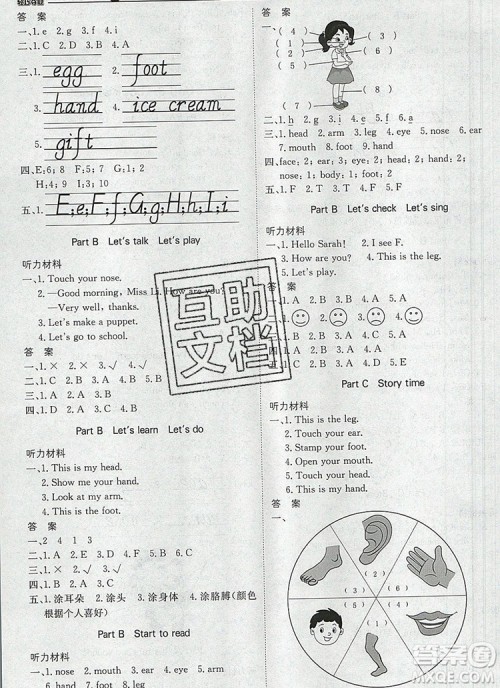 轻巧夺冠
答 案
一、1. e 2. g 3. f
三、1. egg 2. foot
3. hand 4. ice cream
5. gift
四、E;6;8 F;5;7 G;1;2
H;4;9 I;3;10
五、1. E;e;F;f;G;g;H;h;I;i
Part B Let's talk Let's play
听力材料
一、1. Touch your nose.
2. —Good morning, Miss Li. How are you?
—Very well, thanks.
3. Let's make a puppet.
4. Let's go to school.
答 案
一、1. × 2. × 3. √ 4. √
三、1. √ 2. × 3. √
四、1. D 2. C 3. B 4. A
Part B Let's learn Let's do
听力材料
一、1. This is my head.
2. This is my hand.
3. Look at my arm.
4. This is the foot.
答 案
一、2 4 1 3
三、1. A 2. E 3. D 4. C 5. B
四、1. B 2. A 3. A 4. B
五、1. 涂耳朵 2. 涂头 3. 涂身体 4. 涂胳膊(颜色
根据个人喜好)
Part B Start to read
听力材料
一、1. nose 2. mouth 3. leg 4. eye 5. ear
6. body 7. head 8. hand 9. foot 10. arm
答 案
一、
(4)
(6)
(5)
(1)
(2)
(3)
(7)
(8)
二、1. h 2. i 3. g 4. e 5. i 6. f 7. g 8. a
三、1. head 2. arm 3. leg 4. eye 5. nose 6. ear
7. mouth 8. foot 9. hand
四、face;2 ear;3 eye;2 head;2 hand;2
nose;1 body;1 foot;2
五、1. F 2. T 3. T
Part B Let's check Let's sing
听力材料
一、1. Hello Sarah! 2. I see F.
3. How are you? 4. This is the leg.
5. Let's play.
答 案
四、1. B 2. A 3. A 4. B
五、1. D 2. C 3. B 4. E 5. A
Part C Story time
听力材料
一、1. This is the leg.
2. Touch your ear.
3. Stamp your foot.
4. Open your mouth.
5. Touch your face.
6. This is the hand.
答 案
一、
(2)
(3)
(6)
(5)
(1)
(4)
互助
文档
答案圈
MXQE.COM